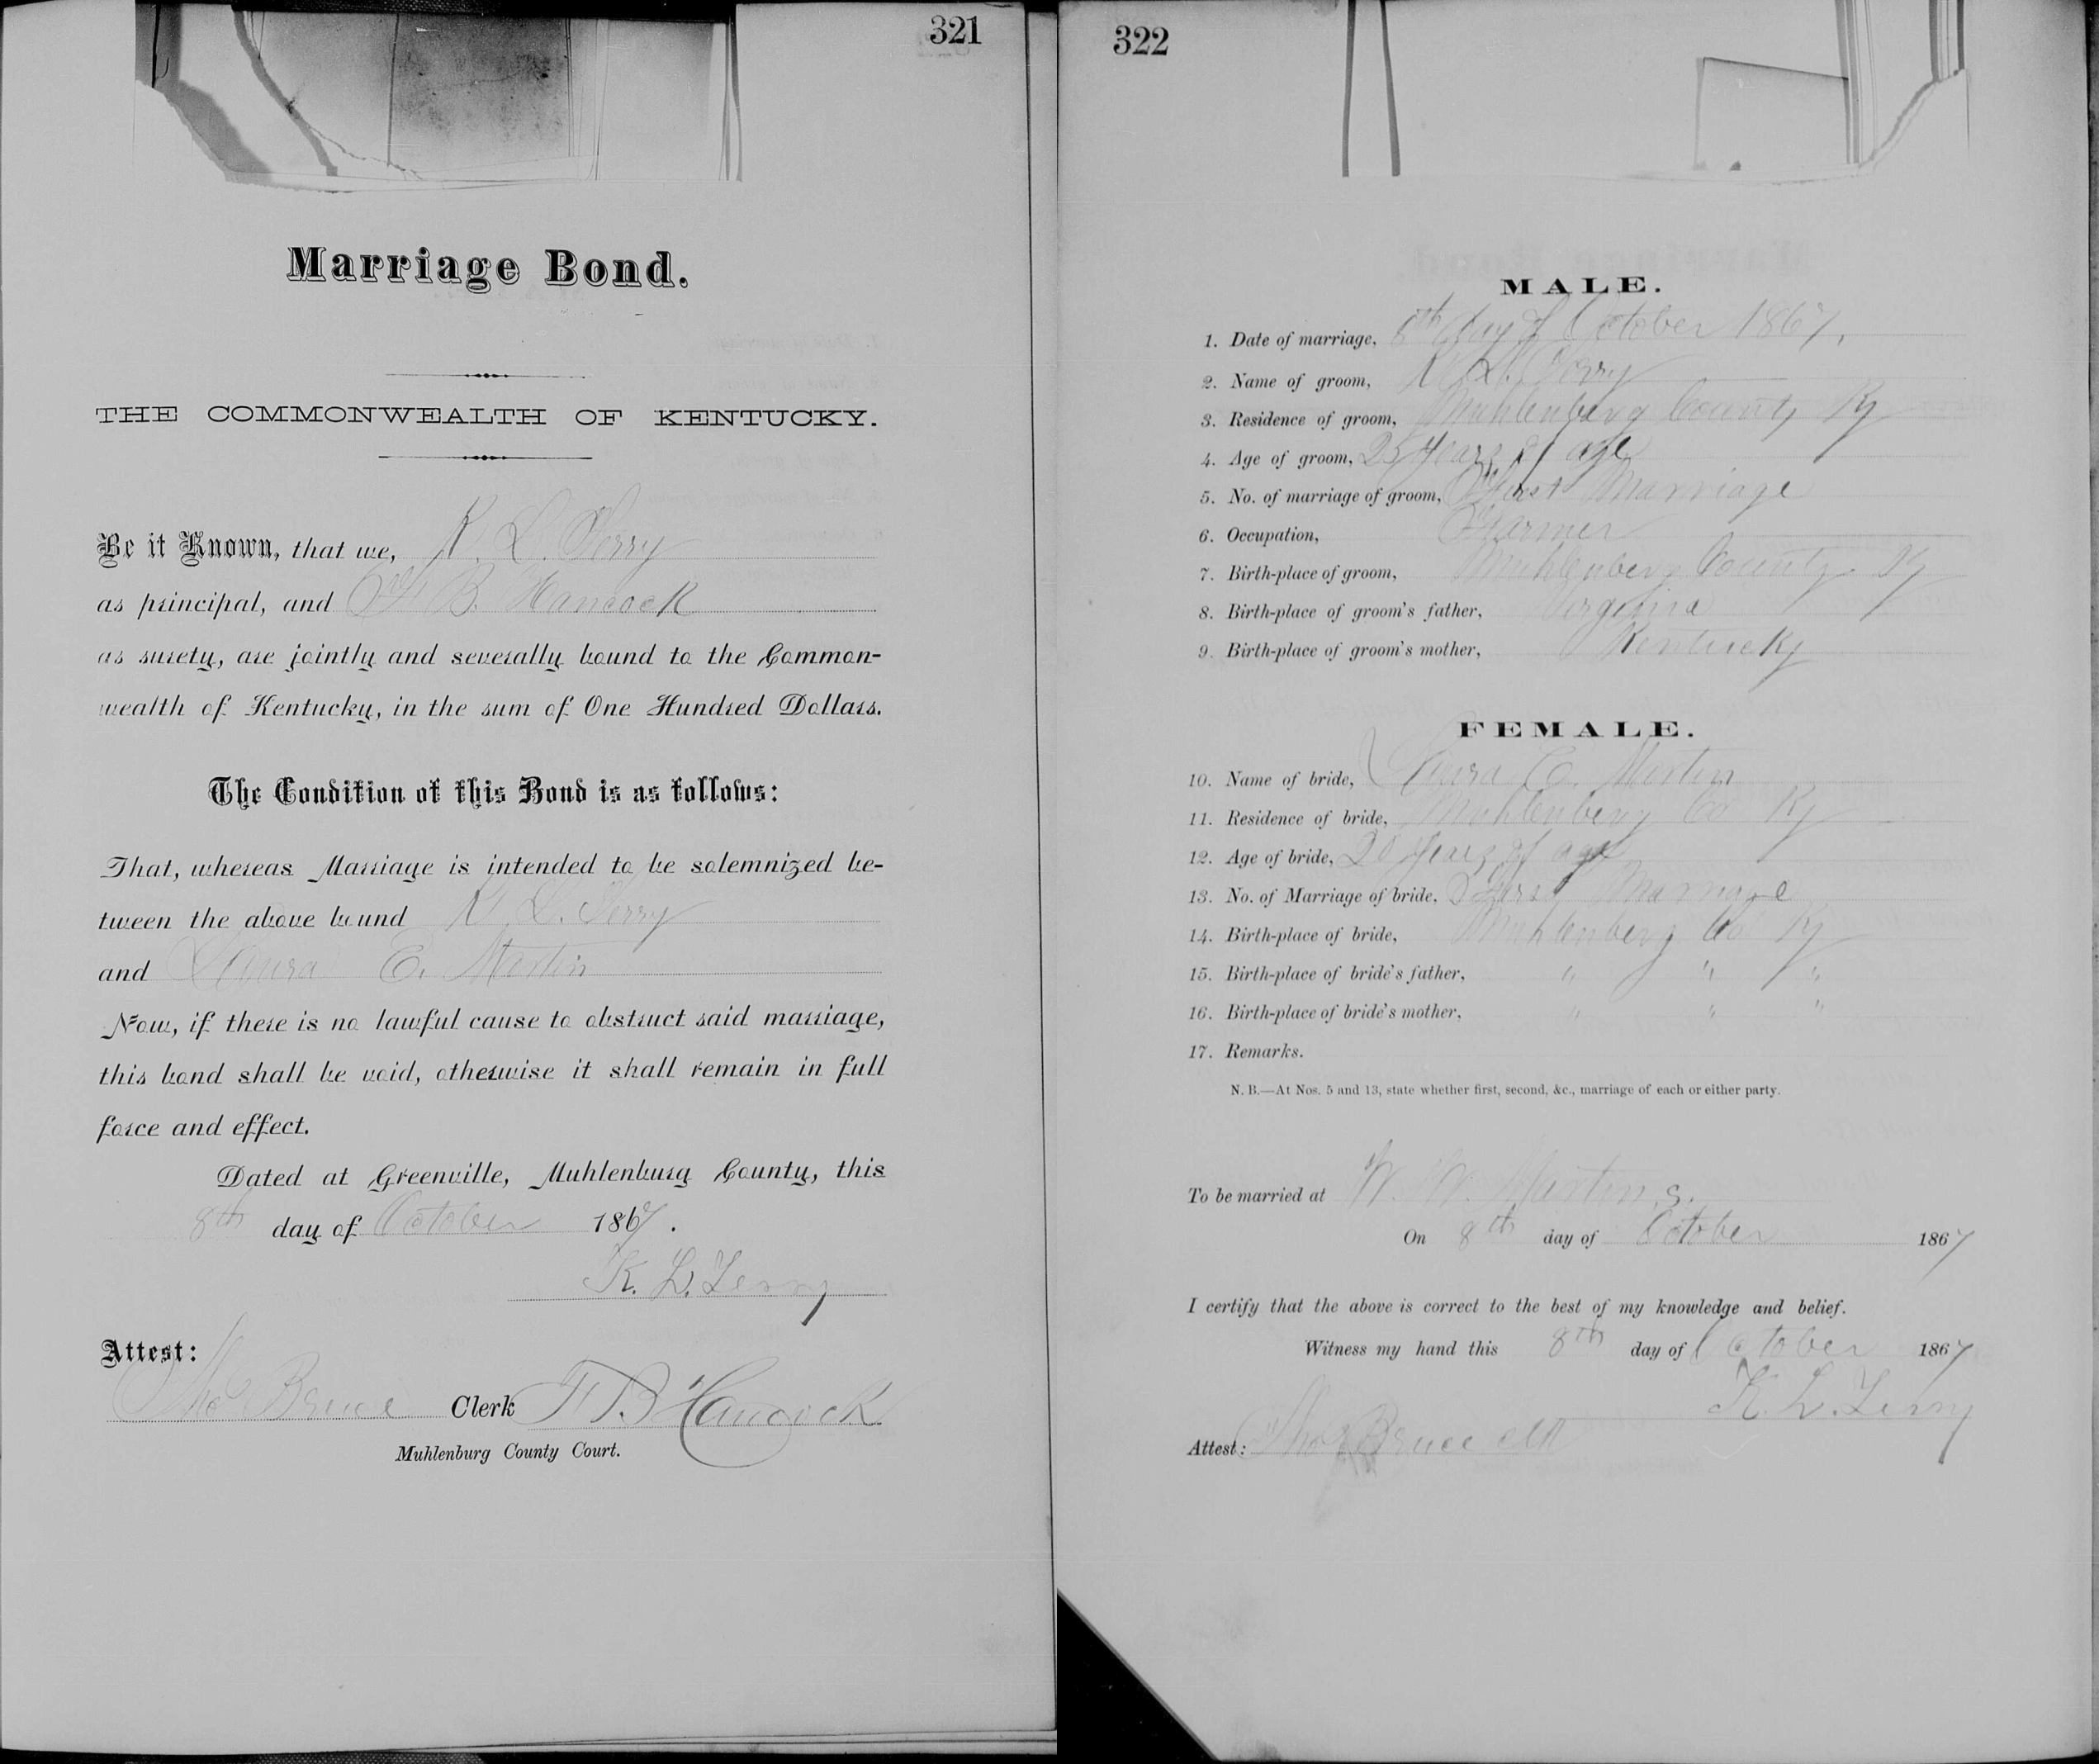 321
Marriage Bond.
THE COMMONWEALTH OF KENTUCKY.
Be it Known, that we, K. L. Terry
as principal, and F B. Hancock
as surety, are jointly and severally bound to the Common-
wealth of Kentucky, in the sum of One Hundred Dollars.
The Condition of this Bond is as follows:
That, whereas Marriage is intended to be solemnized be-
tween the above bound K L. Terry
and Laura E. Martin
Now, if there is no lawful cause to obstruct said marriage,
this bond shall be void, otherwise it shall remain in full
force and effect.
Dated at Greenville, Muhlenburg County, this
8th day of October 1867.
K. L. Terry
Attest:
Tho Bruce Clerk F B Hancock
Muhlenburg County Court.
322
MALE.
1. Date of marriage, 8th day of October 1867.
2. Name of groom, K L. Terry
3. Residence of groom, Muhlenberg County Ky
4. Age of groom, 25 Years of age
5. No. of marriage of groom, First Marriage
6. Occupation, Farmer
7. Birth-place of groom, Muhlenberg County Ky
8. Birth-place of groom's father, Virginia
9. Birth-place of groom's mother, Kentucky
FEMALE.
10. Name of bride, Laura E. Martin
11. Residence of bride, Muhlenberg Co Ky
12. Age of bride, 20 Years of age
13. No. of Marriage of bride, First Marriage
14. Birth-place of bride, Muhlenberg Co Ky
15. Birth-place of bride's father, " " "
16. Birth-place of bride's mother, " " "
17. Remarks.
N. B.—At Nos. 5 and 13, state whether first, second, &c., marriage of each or either party.
To be married at W. W. Martin,s.
On 8th day of October 1867
I certify that the above is correct to the best of my knowledge and belief.
Witness my hand this 8th day of October 1867
K. L. Terry
Attest: Tho Bruce clk